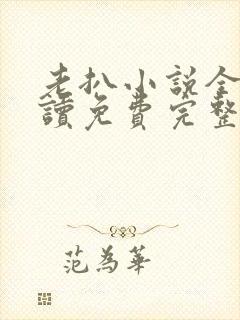 老扒小説全
讀免費完整
范為華